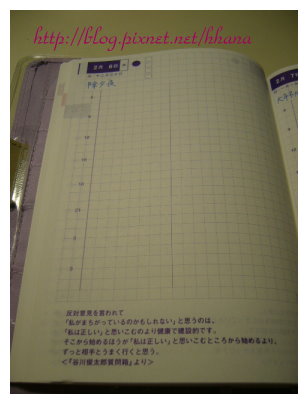 http://blog.pixnet.net/hhana
2月 6日
除夕夜
2月 7
12
18
21
反対意見を言われて
「私がまちがっているのかもしれない」と思うのは、
「私は正しい」と思いこむのより健康で建設的です。
そこから始めるほうが「私は正しい」と思いこむところから始めるより、
ずっと相手とうまく行くと思う。
<『谷川俊太郎質問箱』より>